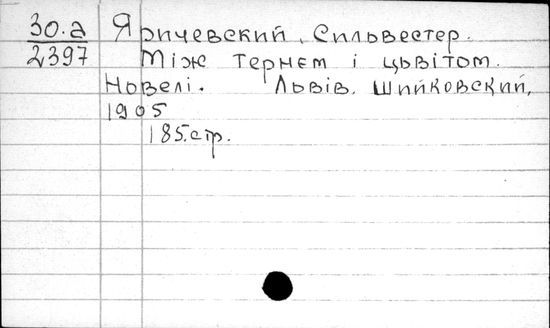 30.а Яричевский, Сильвестер.
2397 Між тернєм і цьвітом.
Новелі. Львів, Шийковский,
1905
185.стр.